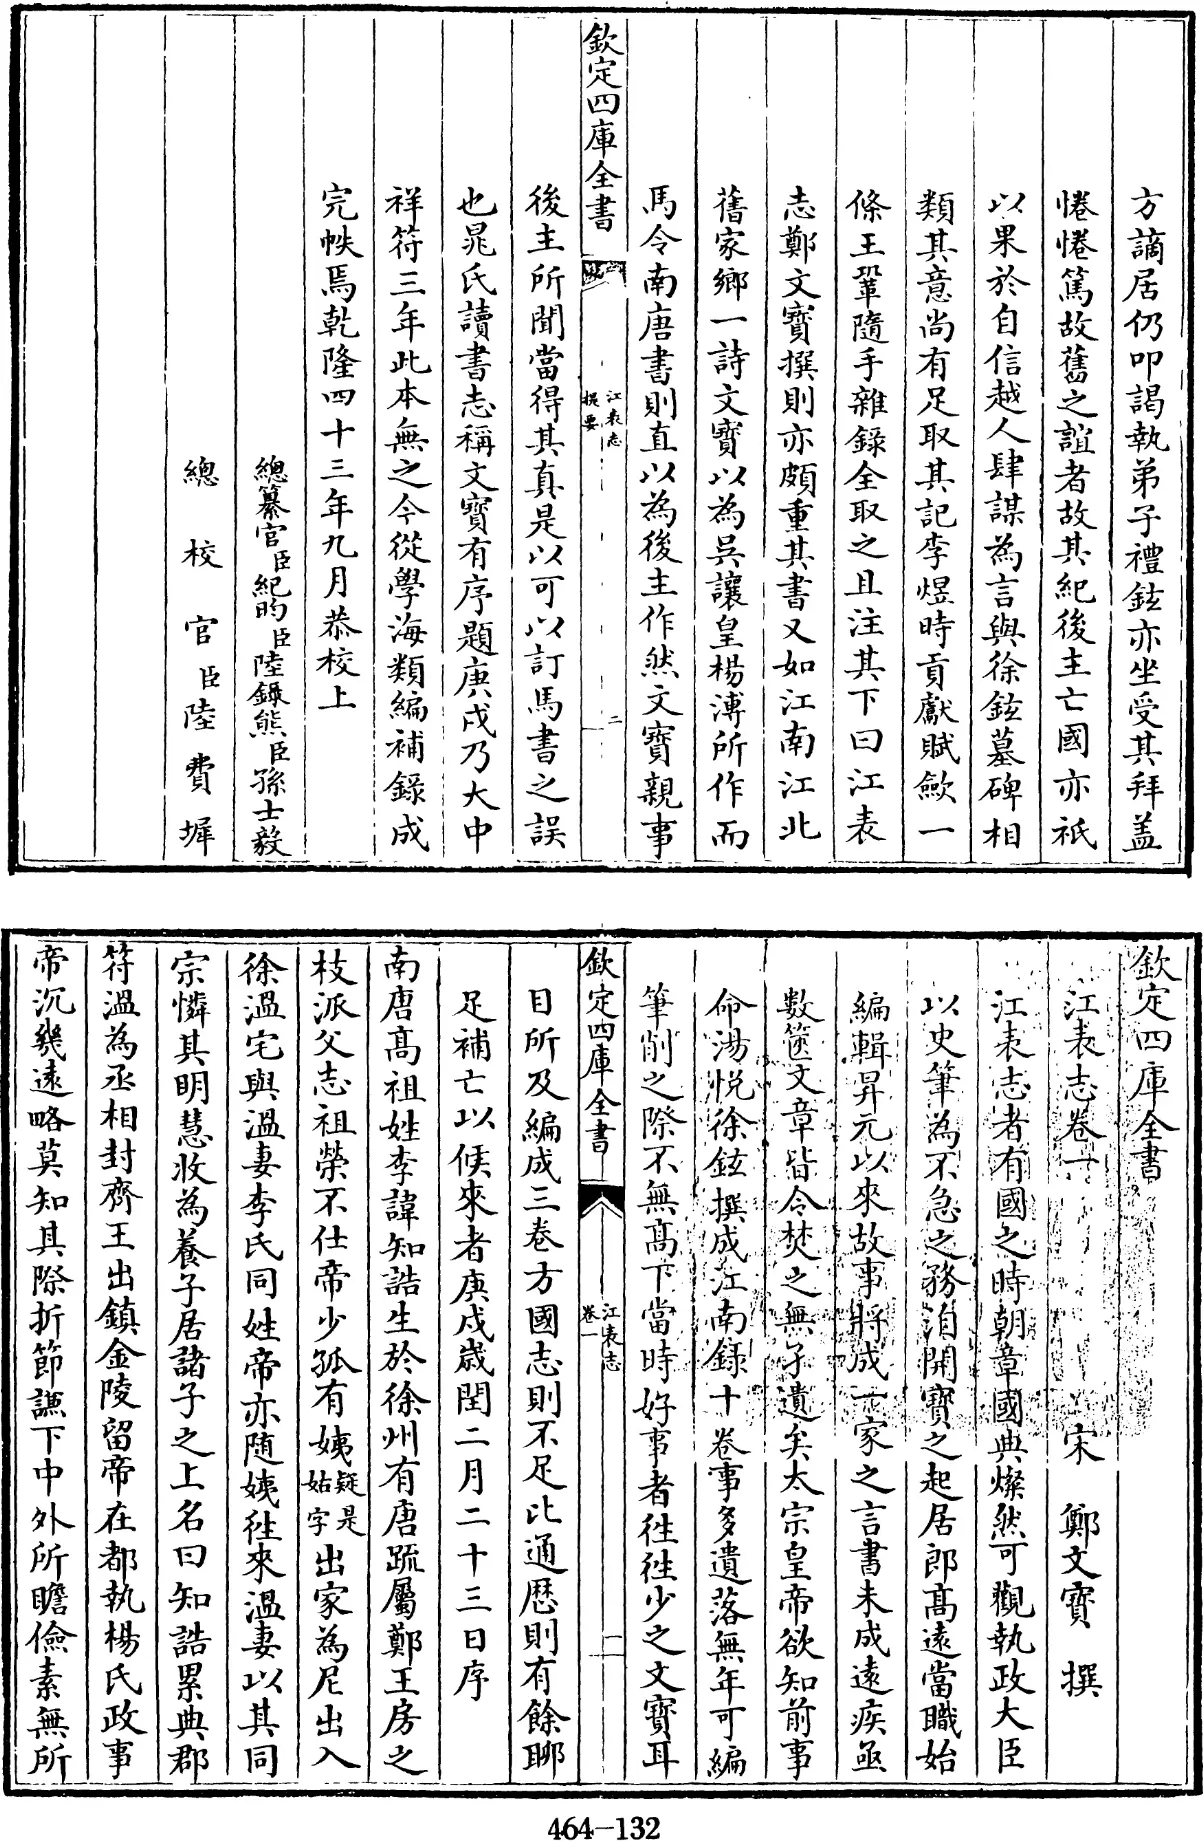 方謫居仍叩謁執弟子禮鉉亦坐受其拜盖
惓惓篤故舊之誼者故其紀後主亡國亦祇
以果於自信越人肆謀為言與徐鉉墓碑相
類其意尚有足取其記李煜時貢獻賦歛一
條王鞏隨手雜錄全取之且注其下曰江表
志鄭文寶撰則亦頗重其書又如江南江北
舊家鄉一詩文寶以為吳讓皇楊溥所作而
馬令南唐書則直以為後主作然文寶親事
欽定四庫全書
江表志
提要
二
後主所聞當得其真是以可以訂馬書之誤
也晁氏讀書志稱文寶有序題庚戌乃大中
祥符三年此本無之今從學海類編補錄成
完帙焉乾隆四十三年九月恭校上
總纂官臣紀昀臣陸錫熊臣孫士毅
總校官臣陸費墀
欽定四庫全書
江表志卷一 宋 鄭文寶 撰
江表志者有國之時朝章國典燦然可觀執政大臣
以史筆為不急之務洎開寶之起居郎高遠當職始
編輯昇元以來故事將成一家之言書未成遠疾亟
數篋文章皆令焚之無孑遺矣太宗皇帝欲知前事
命湯悅徐鉉撰成江南錄十卷事多遺落無年可編
筆削之際不無高下當時好事者徃徃少之文寶耳
欽定四庫全書
江表志
卷一
一
目所及編成三卷方國志則不足比通歷則有餘聊
足補亡以候來者庚戌歲閏二月二十三日序
南唐高祖姓李諱知誥生於徐州有唐疏屬鄭王房之
枝派父志祖榮不仕帝少孤有姨疑是姑字出家為尼出入
徐溫宅與溫妻李氏同姓帝亦随姨徃來溫妻以其同
宗憐其明慧收為養子居諸子之上名曰知誥累典郡
符溫為丞相封齊王出鎮金陵留帝在都執楊氏政事
帝沉幾遠略莫知其際折節謙下中外所瞻儉素無所
464-132